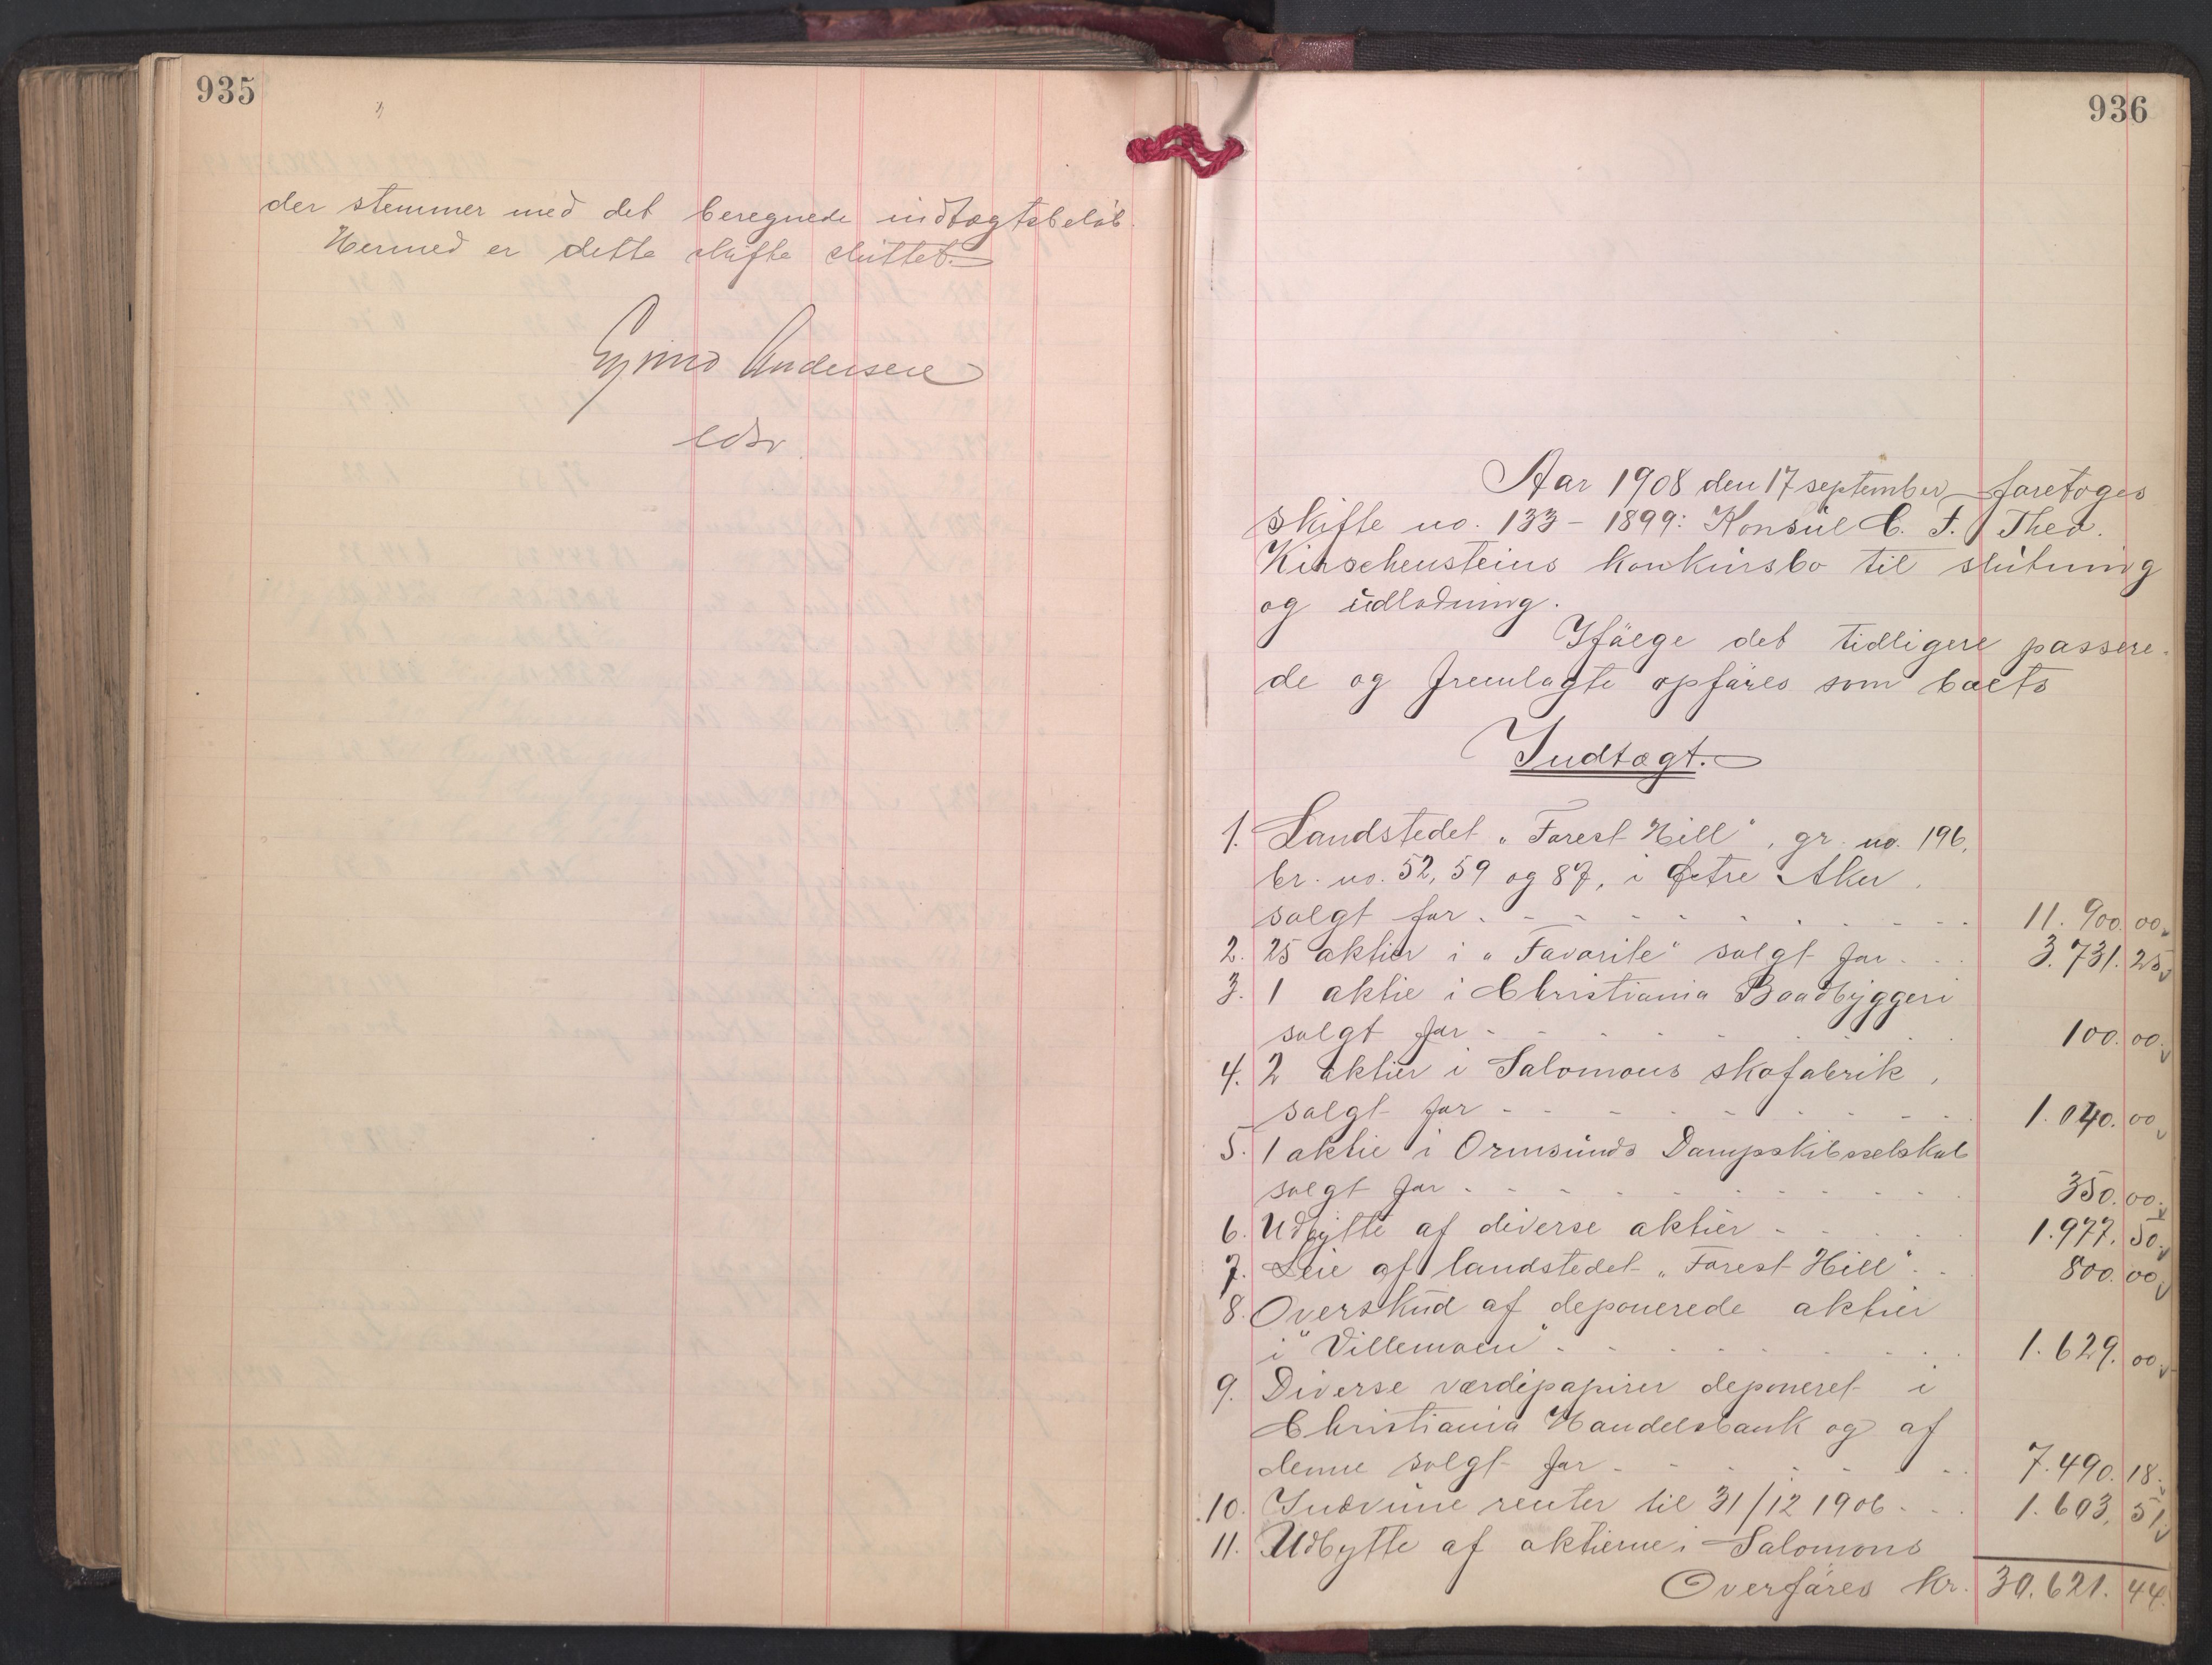 935
der stemmer med det beregnede indtægtsbeløb.
Hermed er dette skifte sluttet.
Eyvind Andersen
edsv.
936
Aar 1908 den 17 september foretoges
skifte no. 133 - 1899: Konsul C. F. Theo.
Kirschensteins konkursbo til slutning
og udlodning.
Ifølge det tidligere passere-
de og fremlagte opføres som boets
Indtægt.
1. Landstedet „Forest Hill“, gr. no. 196,
br. no. 52, 59 og 87, i Østre Aker,
solgt for - - - - - - - - 11.900.00
2. 25 aktier i „Favorite“ solgt for - - - 3.731.25
3. 1 aktie i Christiania Baadbyggeri
solgt for - - - - - - - - 100.00
4. 2 aktier i Salomons skofabrik,
solgt for - - - - - - - - 1.040.00
5. 1 aktie i Ormsunds Dampskibsselskab
solgt for - - - - - - - - 350.00
6. Udbytte af diverse aktier - - - - 1.977.50
7. Leie af landstedet „Forest Hill“ - - 800.00
8. Overskud af deponerede aktier
i "Villemoen" - - - - - - - - 1.629.00
9. Diverse værdipapirer deponeret i
Christiania Handelsbank og af
denne solgt for - - - - - - - 7.490.18
10. Indvune renter til 31/12 1906 - - 1.603.51
11. Udbytte af aktierne i Salomons
Overføres kr. 30.621.44